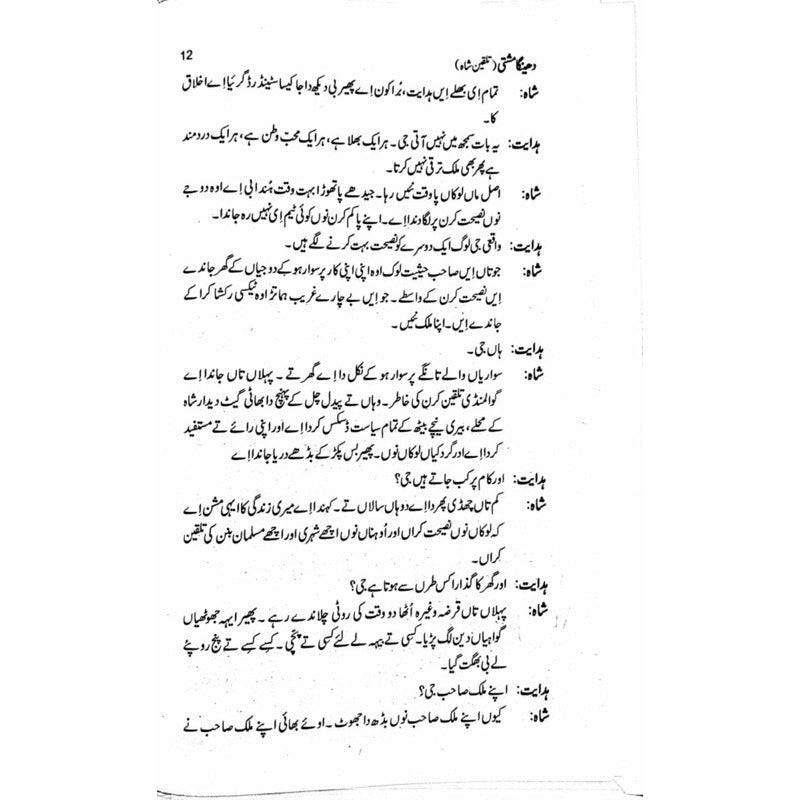 دھینگا مشتی (تلقین شاہ)
12
شاہ: تمام اِی بھلے اِیں ہدایت، بُرا کون اِے پھیر بی دیکھ دا جا کیسا سٹینڈرڈ گر ئیا اِے اخلاق
کا۔
ہدایت: یہ بات سمجھ میں نہیں آتی جی۔ ہر ایک بھلا ہے، ہر ایک محبّ وطن ہے، ہر ایک دردمند
ہے پھر بھی ملک ترقی نہیں کرتا۔
شاہ: اصل ماں لوکاں پا وقت نئیں رہا۔ جیدھے پا تھوڑا بہت وقت ہُندا بی اِے اوہ دوجے
نوں نصیحت کرن پر لگا دندا اِے۔ اپنے پا کم کرن نوں کوئی ٹیم اِی نہیں رہ جاندا۔
ہدایت: واقعی جی لوگ ایک دوسرے کو نصیحت بہت کرنے لگے ہیں۔
شاہ: جو تاں اِیں صاحب حیثیت لوک اوہ اپنی اپنی کار پر سوار ہو کے دوجیاں کے گھر جاندے
اِیں نصیحت کرن کے واسطے۔ جو اِیں بے چارے غریب ہماتڑ اوہ ٹیکسی رکشا کرا کے
جاندے اِیں۔ اپنا ملک نئیں۔
ہدایت: ہاں جی۔
شاہ: سواریاں والے تانگے پر سوار ہو کے نکل دا اِے گھر تے۔ پہلاں تاں جاندا اِے
گوالمنڈی تلقین کرن کی خاطر۔ وہاں تے پیدل چل کے پہنچ دا بھاٹی گیٹ دیدار شاہ
کے محلے، بیری نیچے بیٹھ کے تمام سیاست ڈسکس کردا اِے اور اپنی رائے تے مستفید
کردا اِے اور گرد کیاں لوکاں نوں۔ پھیر بس پکڑ کے بڈھے دریا جاندا اِے
ہدایت: اور کام پر کب جاتے ہیں جی؟
شاہ: کم تاں چھڈی پھر دا اِے دوہاں سالاں تے۔ کہندا اِے میری زندگی کا ایہی مشن اِے
کہ لوکاں نوں نصیحت کراں اور اُوہناں نوں اچھے شہری اور اچھے مسلمان بنن کی تلقین
کراں۔
ہدایت: اور گھر کا گذارا کس طرں سے ہوتا ہے جی؟
شاہ: پہلاں تاں قرضہ وغیرہ اُٹھا دو وقت کی روٹی چلاندے رہے۔ پھیر ایہہ جھوٹھیاں
گواہیاں دین لگ پڑیا۔ کسی تے بیہہ لے لئے کسی تے پنجی۔ کسے کسے تے پنج روپئے
لے بی بھگت گیا۔
ہدایت: اپنے ملک صاحب جی؟
شاہ: کیوں اپنے ملک صاحب نوں بڈھ دا جھوٹ۔ اوئے بھائی اپنے ملک صاحب نے